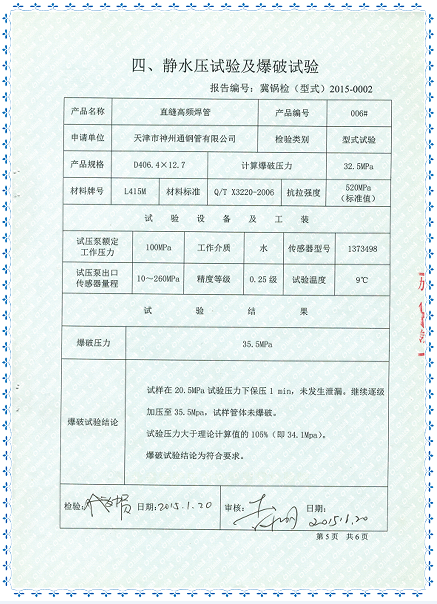 四、静水压试验及爆破试验
报告编号：冀锅检（型式）2015-0002
产品名称 直缝高频焊管 产品编号 006#
申请单位 天津市神州通钢管有限公司 检验类别 型式试验
产品规格 D406.4×12.7 计算爆破压力 32.5MPa
材料牌号 L415M 材料标准 Q/T X3220-2006 抗拉强度 520MPa
（标准值）
试验设备及工装
试压泵额定
工作压力 100MPa 工作介质 水 传感器型号 1373498
试压泵出口
传感器量程 10～260MPa 精度等级 0.25级 试验温度 9℃
试验结果
爆破压力 35.5MPa
爆破试验结论
试样在20.5MPa试验压力下保压1 min，未发生泄漏。继续逐级
加压至35.5Mpa，试样管体未爆破。
试验压力大于理论计算值的105%（即34.1Mpa）。
爆破试验结论为符合要求。
检验： 日期：2015.1.20 审核： 日期：
2015.1.20
第5页 共6页